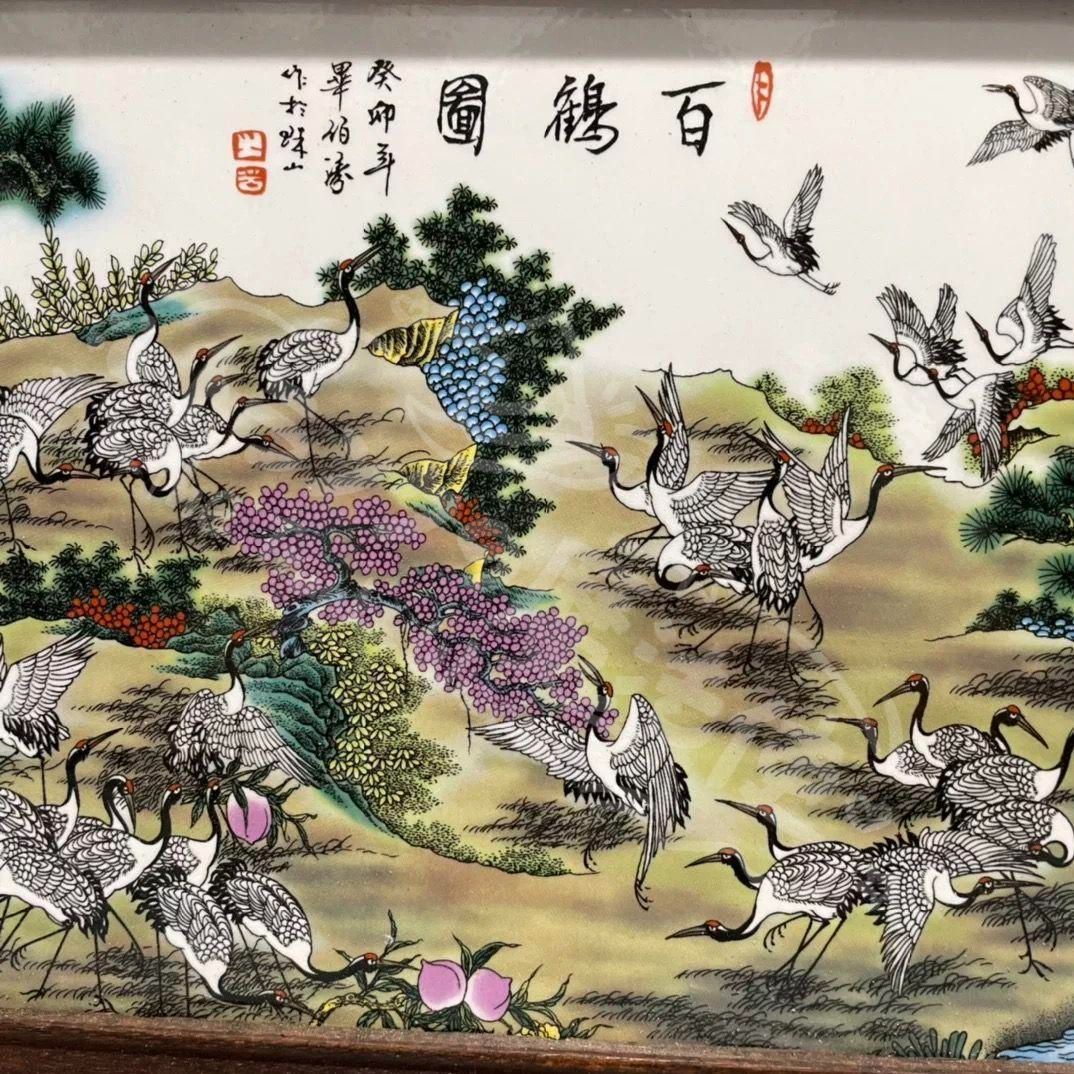 百鶴圖
癸卯年
畢伯濤
作於珠山